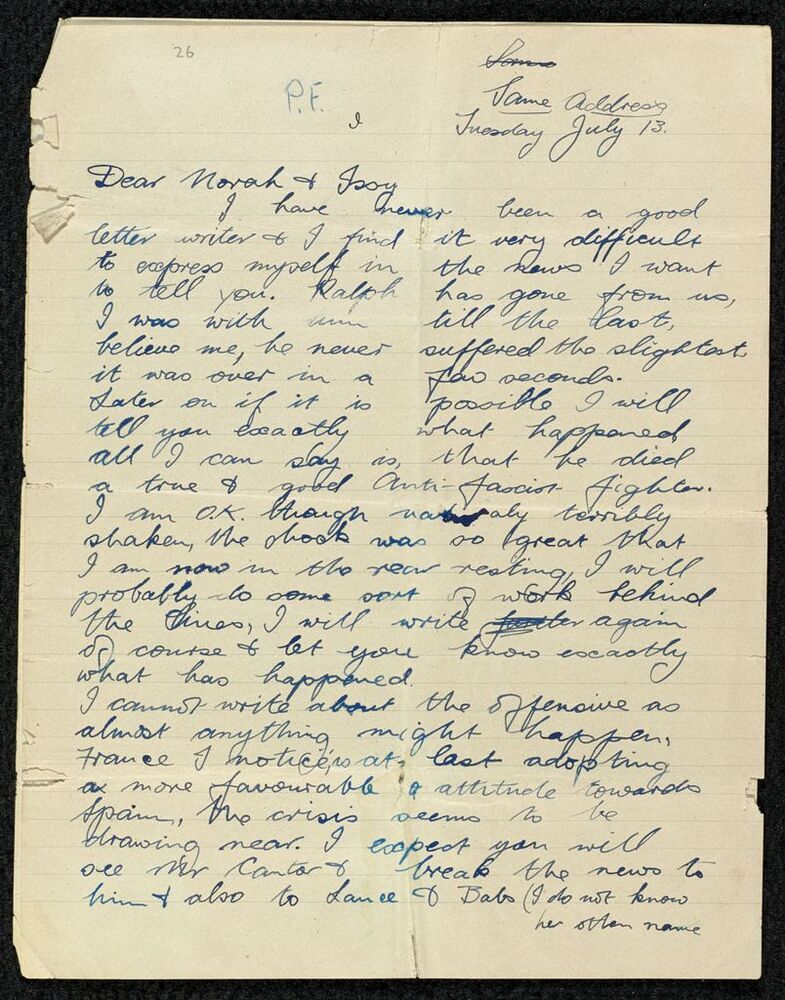 26
P.F.
Same
Same Address
Tuesday July 13.
Dear Norah & Issy
I have never been a good
letter writer & I find it very difficult
to express myself in the news I want
to tell you. Ralph has gone from us,
I was with him till the last,
believe me, he never suffered the slightest
it was over in a few seconds.
Later on if it is possible I will
tell you exactly what happened
all I can say is, that he died
a true & good Anti-fascist fighter.
I am O.K. though terribly
shaken, the shock was so great that
I am now in the rear resting, I will
probably do some sort of work behind
the lines, I will write again
of course & let you know exactly
what has happened.
I cannot write about the offensive as
almost anything might happen,
France I notice, is at last adopting
a more favourable attitude towards
Spain, the crisis seems to be
drawing near. I expect you will
see Mr Cantor & break the news to
him & also to Lance & Babs (I do not know
her other name